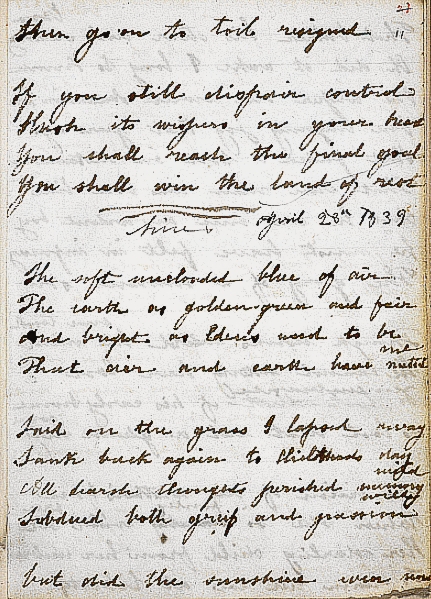 27
then go on to toil resigned "
If you still dispair control
Hush its wispers in your breast
You shall reach the final goal
You shall win the land of rest
Lines April 28th 1839
The soft unclouded blue of air
The earth as golden-green and fair
And bright as Edens used to be
That air and earth have rested me
Laid on the grass I lapsed away
Sank back again to Childhoods day
All harsh thoughts perished memory mild
Subdued both grief and passion wild
but did the sunshine even now